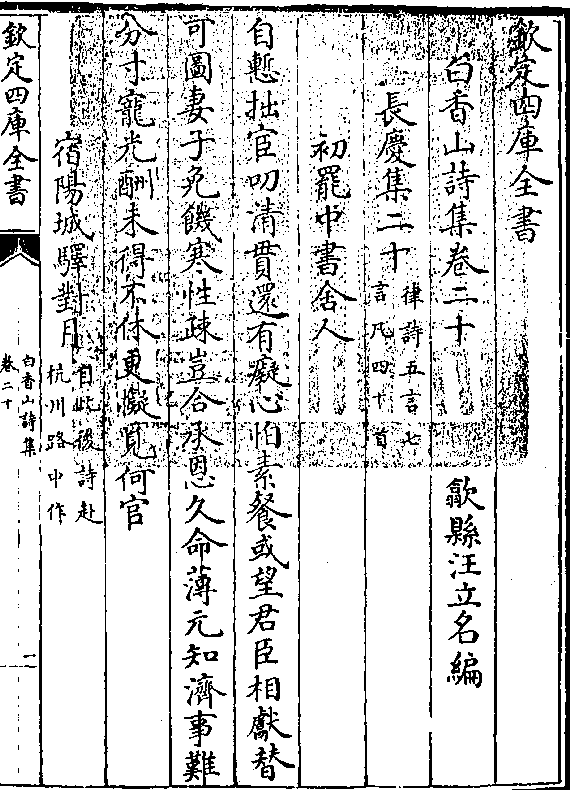 欽定四庫全書
白香山詩集卷二十
歙縣汪立名編
長慶集二十
律詩五言七
言凡四十首
初罷中書舍人
自慙拙宦叨清貫還有癡心怕素餐或望君臣相獻替
可圖妻子免饑寒性疎豈合承恩久命薄元知濟事難
分寸寵光酬未得不休更擬覓何官
宿陽城驛對月
自此後詩赴
杭州路中作
欽定四庫全書
白香山詩集
卷二十
一